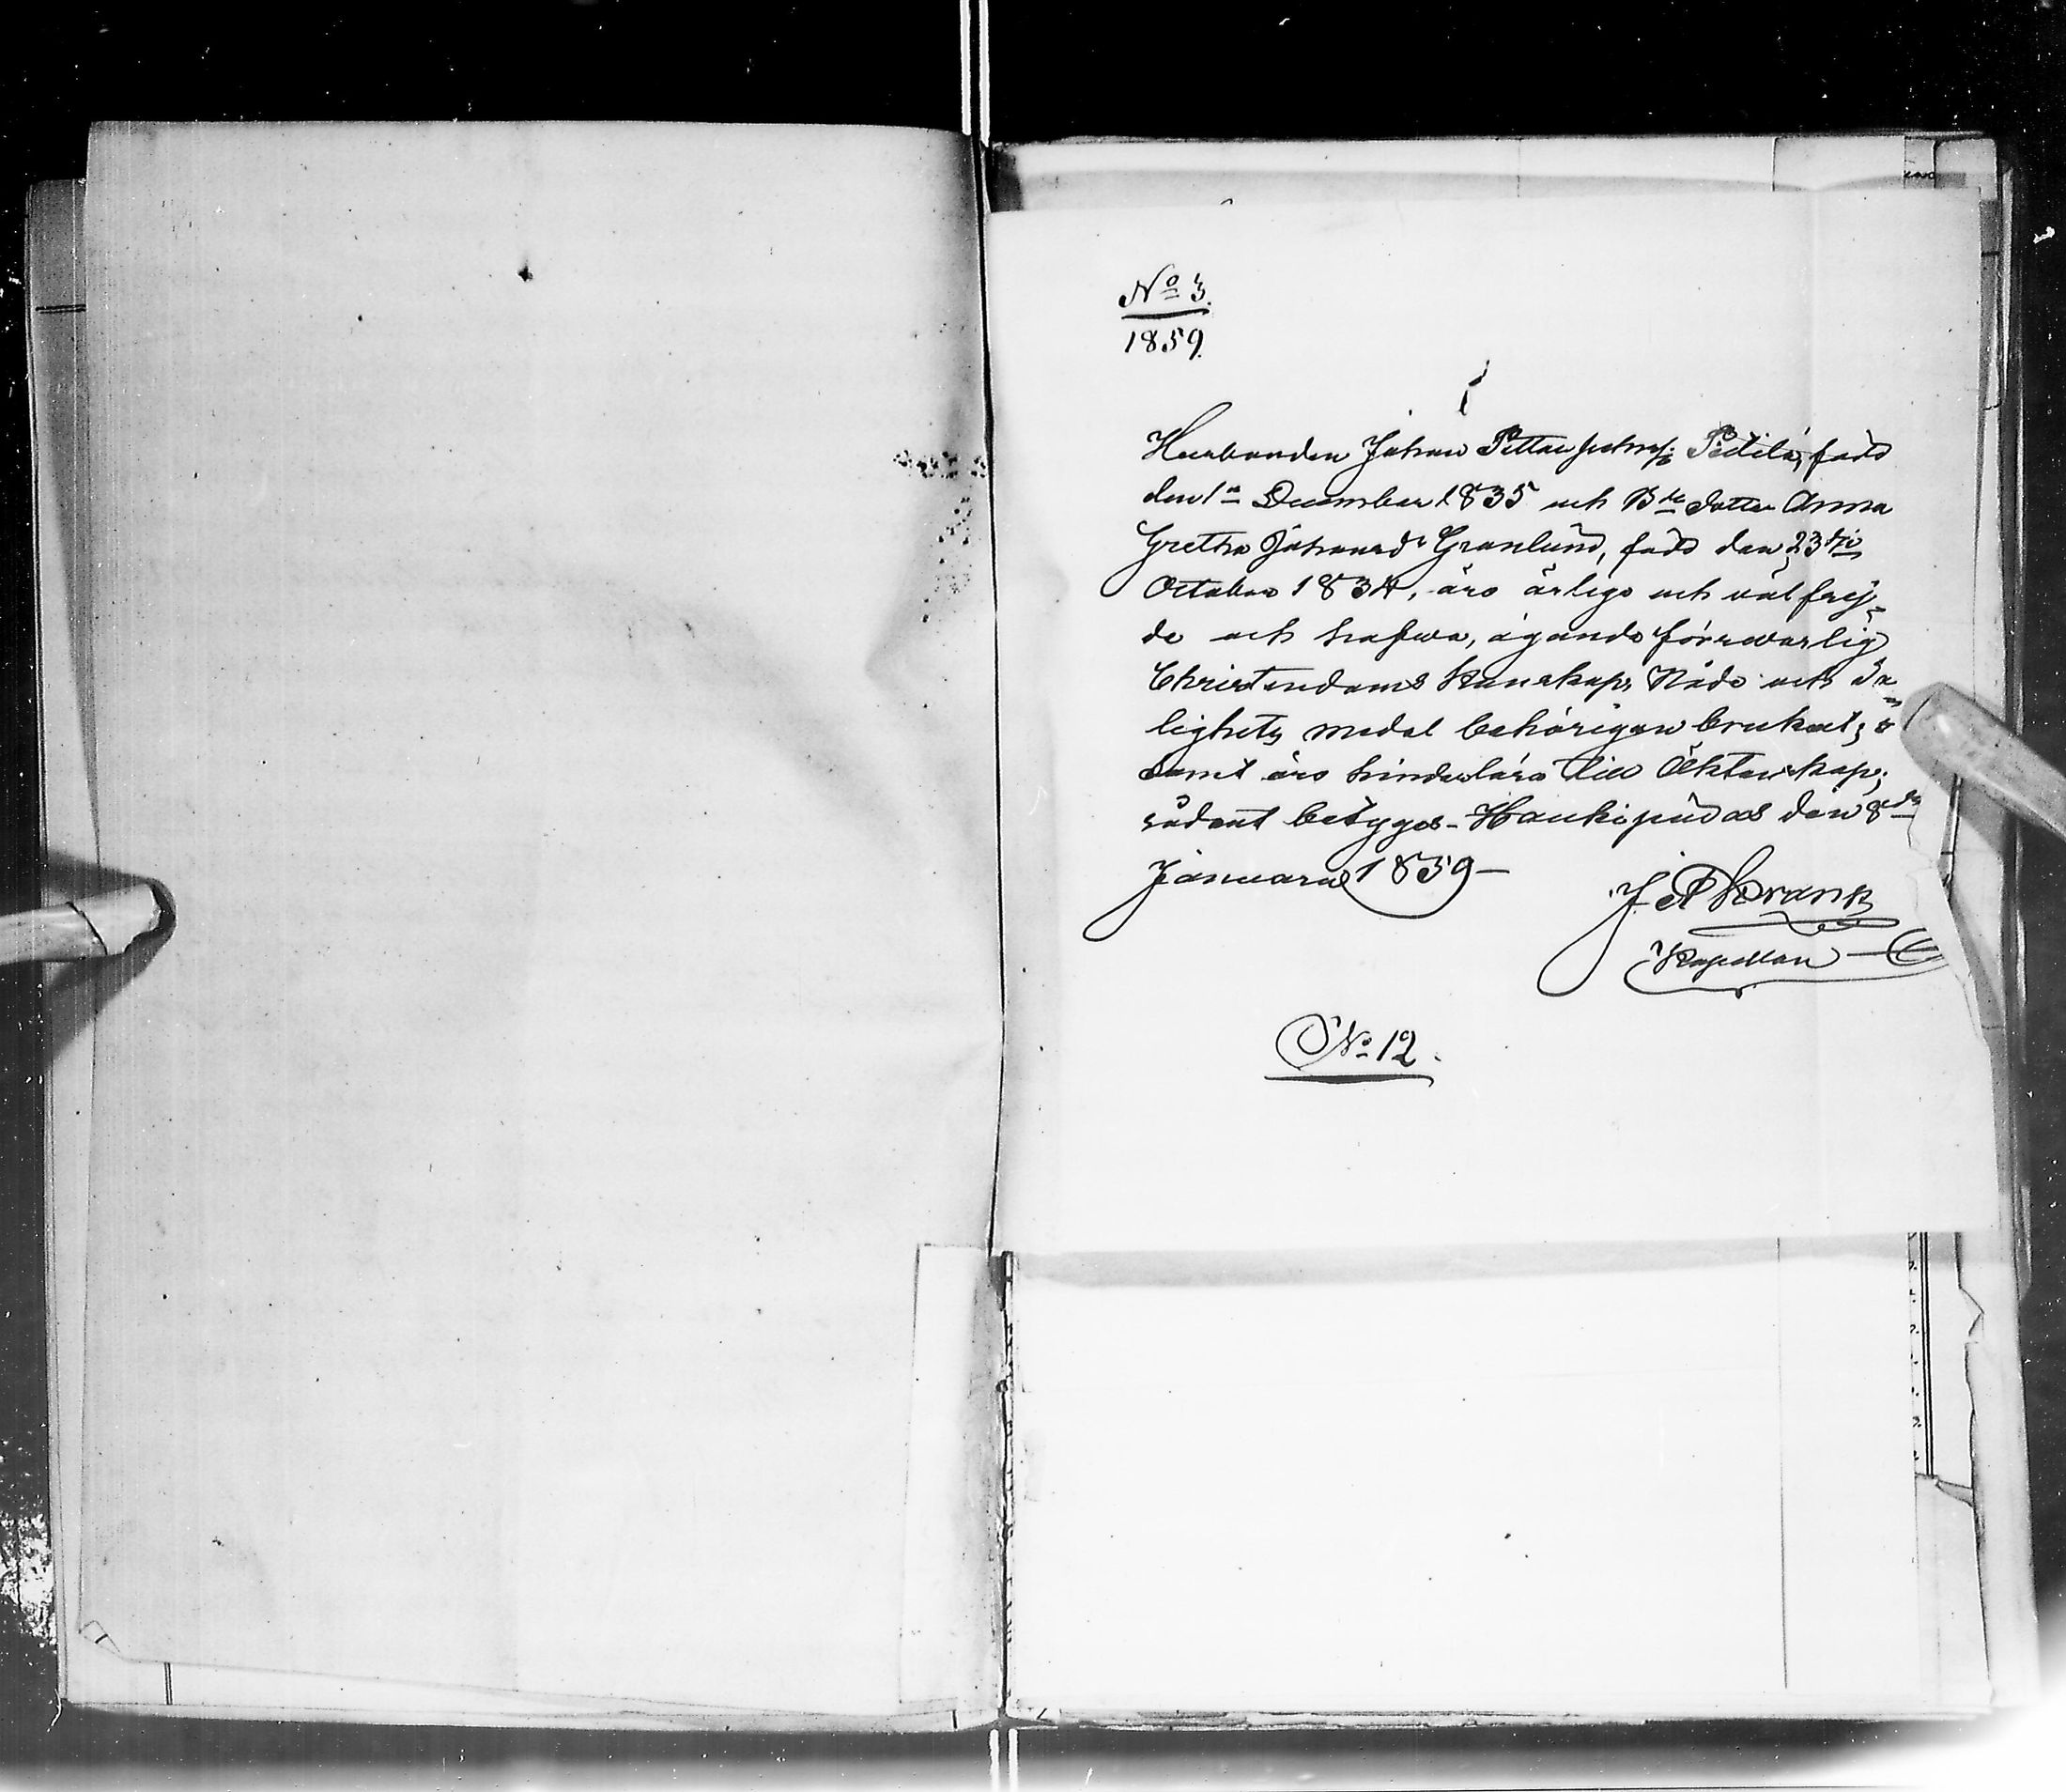 No 3.
1859.
Husbonden Johan Petter Johansș: Pietilä, född
den 1a December 1835 och Bde dotter Anna
Gretha Johansdr Granlund, född den 23dje
October 1834, äro ärliga och välfrej-
de och hafwa, ägande förswarlig
Christendoms kunskap, Nåde och Sa-
lighets medel behörigen brukat;
samt äro hinderlösa till Äktenskap;
sådant betygas - Haukipudas den 8de
Januarii 1859 -
J A Krank
Kapellan
No 12.